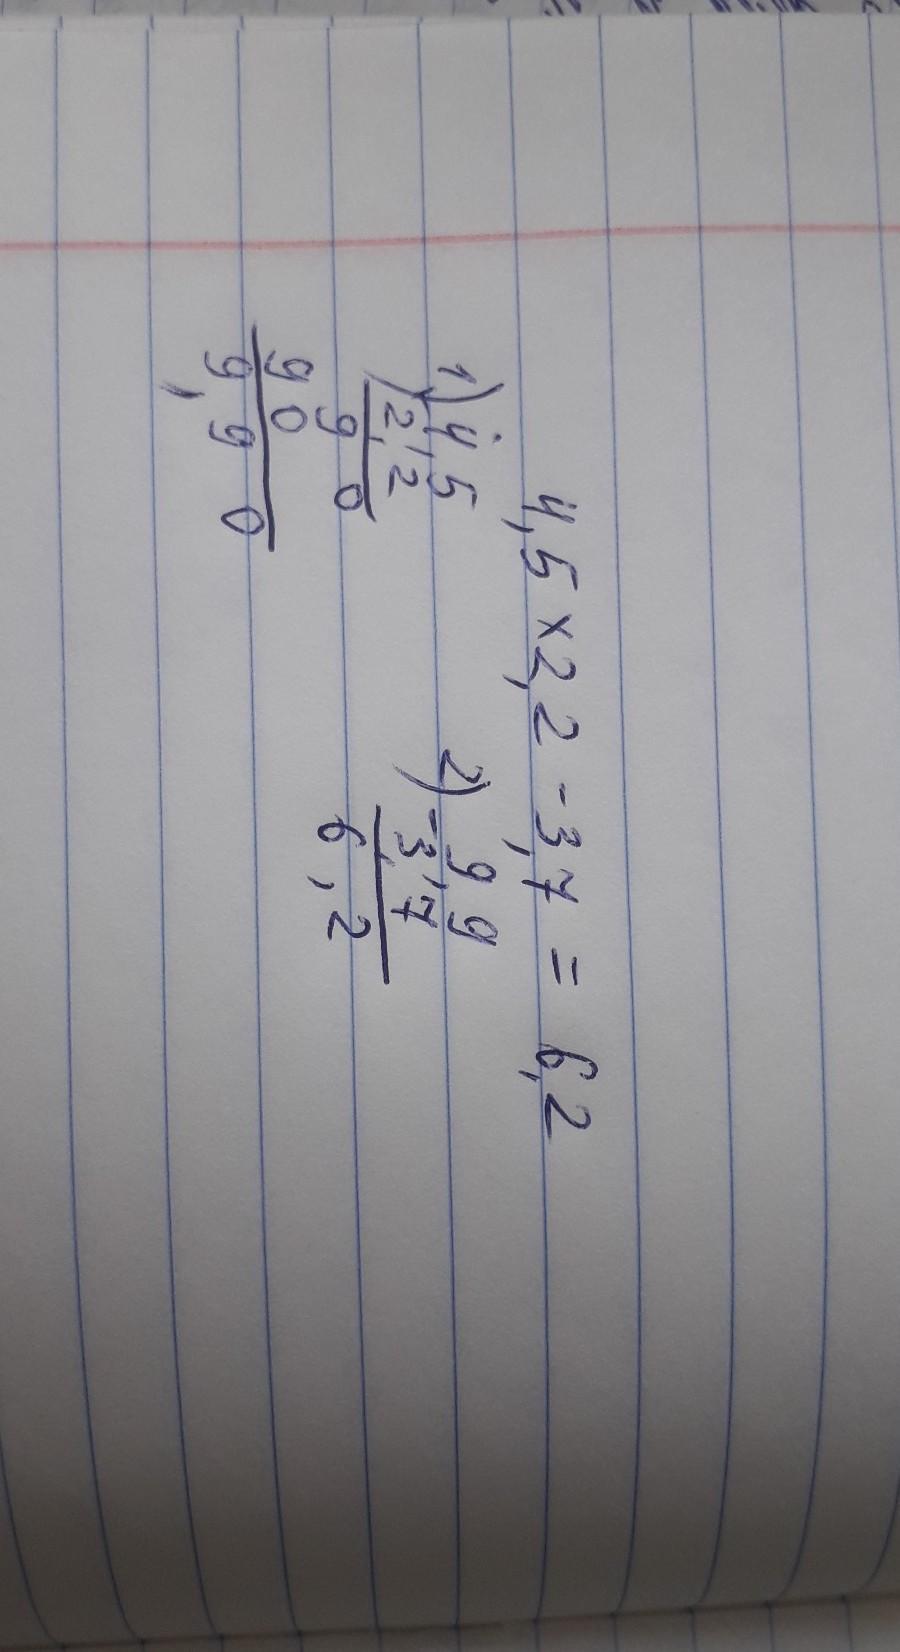 4,5 x 2,2 - 3,7 = 6,2
1) 4,5
2,2
9 0
9 0
9, 9 0
2) 9,9
-3,7
6,2